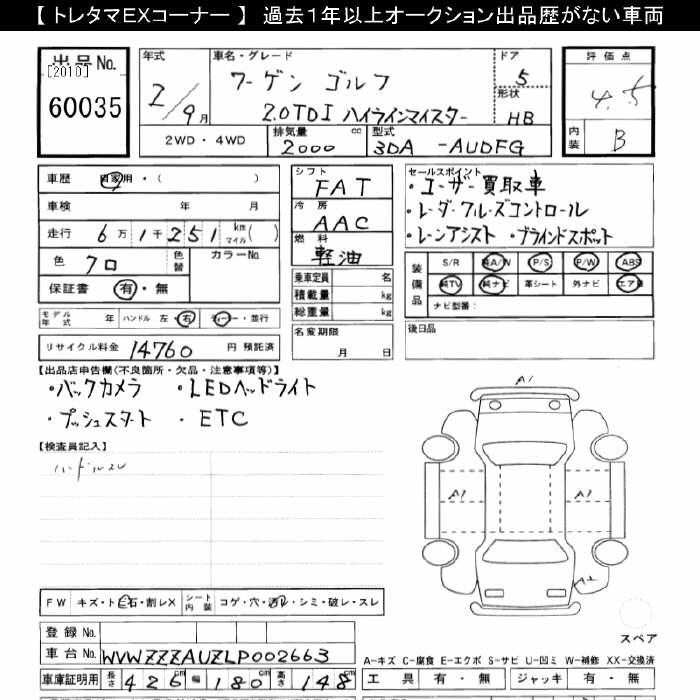 【 トレタマEXコーナー 】 過去１年以上オークション出品歴がない車両
出品 No. [2010] 60035
年式 2／9月
車名・グレード ワーゲン ゴルフ 2.0TDI ハイラインマイスター
ドア 5
形状 HB
評価点 4.5
内装 B
2WD・4WD
排気量 2000 cc
型式 3DA -AUDFG
車歴 自家用・( )
車検 年 月
走行 6万1千251 km マイル ( )
色 クロ 色替 カラーNo.
保証書 有・無
モデル年式 年 ハンドル 左・右 ディーラー・並行
リサイクル料金 14760 円 預託済
シフト FAT
冷房 AAC
燃料 軽油
乗車定員 名
積載量 kg
総重量 kg
名変期限 月 日
セールスポイント
・ユーザー買取車
・レーダークルーズコントロール
・レーンアシスト ・ブラインドスポット
装備品 S/R 純A/W P/S P/W ABS
純TV 純ナビ 革シート 外ナビ エアB
ナビ型番：
後日品
【出品店申告欄(不良箇所・欠品・注意事項等)】
・バックカメラ ・LEDヘッドライト
・プッシュスタート ・ETC
【検査員記入】
ハンドルスレ
A1
A1 A1
A2
FW キズ・ト石・割レX シート内装 コゲ・穴・汚レ・シミ・破レ・スレ
スペア
登録 No.
車台 No. WVWZZZAUZLP002663
A-キズ C-腐食 E-エクボ S-サビ U-凹ミ W-補修 XX-交換済
車庫証明用 長さ 426 cm 幅 180 cm 高さ 148 cm
工具 有・無 ジャッキ 有・無